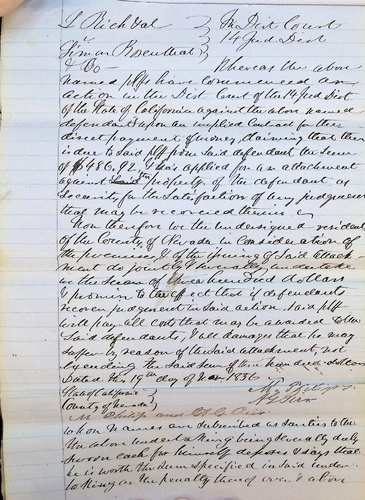 L Rich Val } In Dist Court
vs } 14 Jud Dist
Simon Rosenthal }
& Co - Whereas the above
named plffs have commenced an
action in the Dist Court of the 14 Jud Dist
of the State of California against the above named
defendants upon an implied Contract for the
direct payment of money, claiming that there
is due to said plff from said defendant the sum
of $486.92, & has applied for an attachment
against the property of the defendant as
Security for the Satisfaction of any judgement
that may be recovered therein
Now therefore we the undersigned residents
of the County of Nevada in Consideration of
the premises, & of the issuing of said attach
ment do jointly & severally undertake
in the Sum of three hundred dollars
& promise to the effect that if defendants
recover judgement in said action said plff
will pay all costs that may be awarded to the
Said defendants, & all damages that he may
suffer by reason of the said attachment, not
exceeding the said sum of three hundred dollars
Dated this 19th day of 1856
State of California }
County of Nevada }
M. Philips and
whose names are subscribed as sureties to the
the above undertaking being severally duly
sworn each for himself deposes & says that
he is worth the sum specified in said under
taking as the penalty thereof over & above